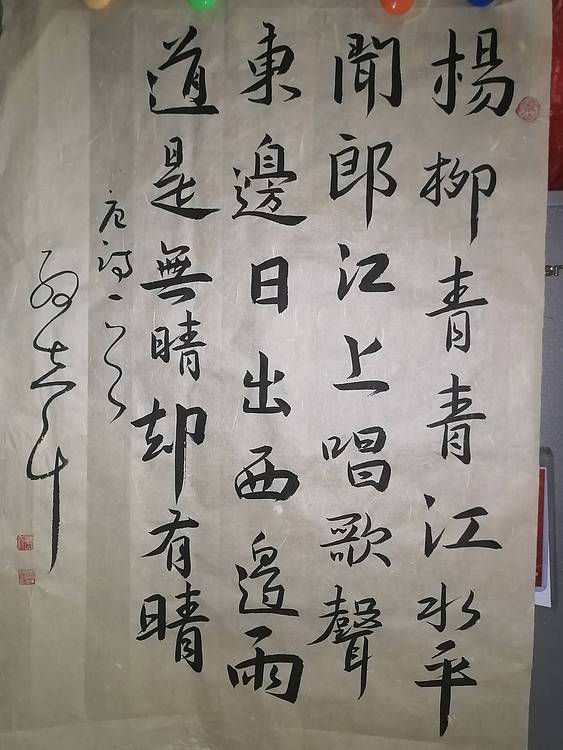 楊柳青青江水平
聞郎江上唱歌聲
東邊日出西邉雨
道是無晴却有晴
唐詩一首